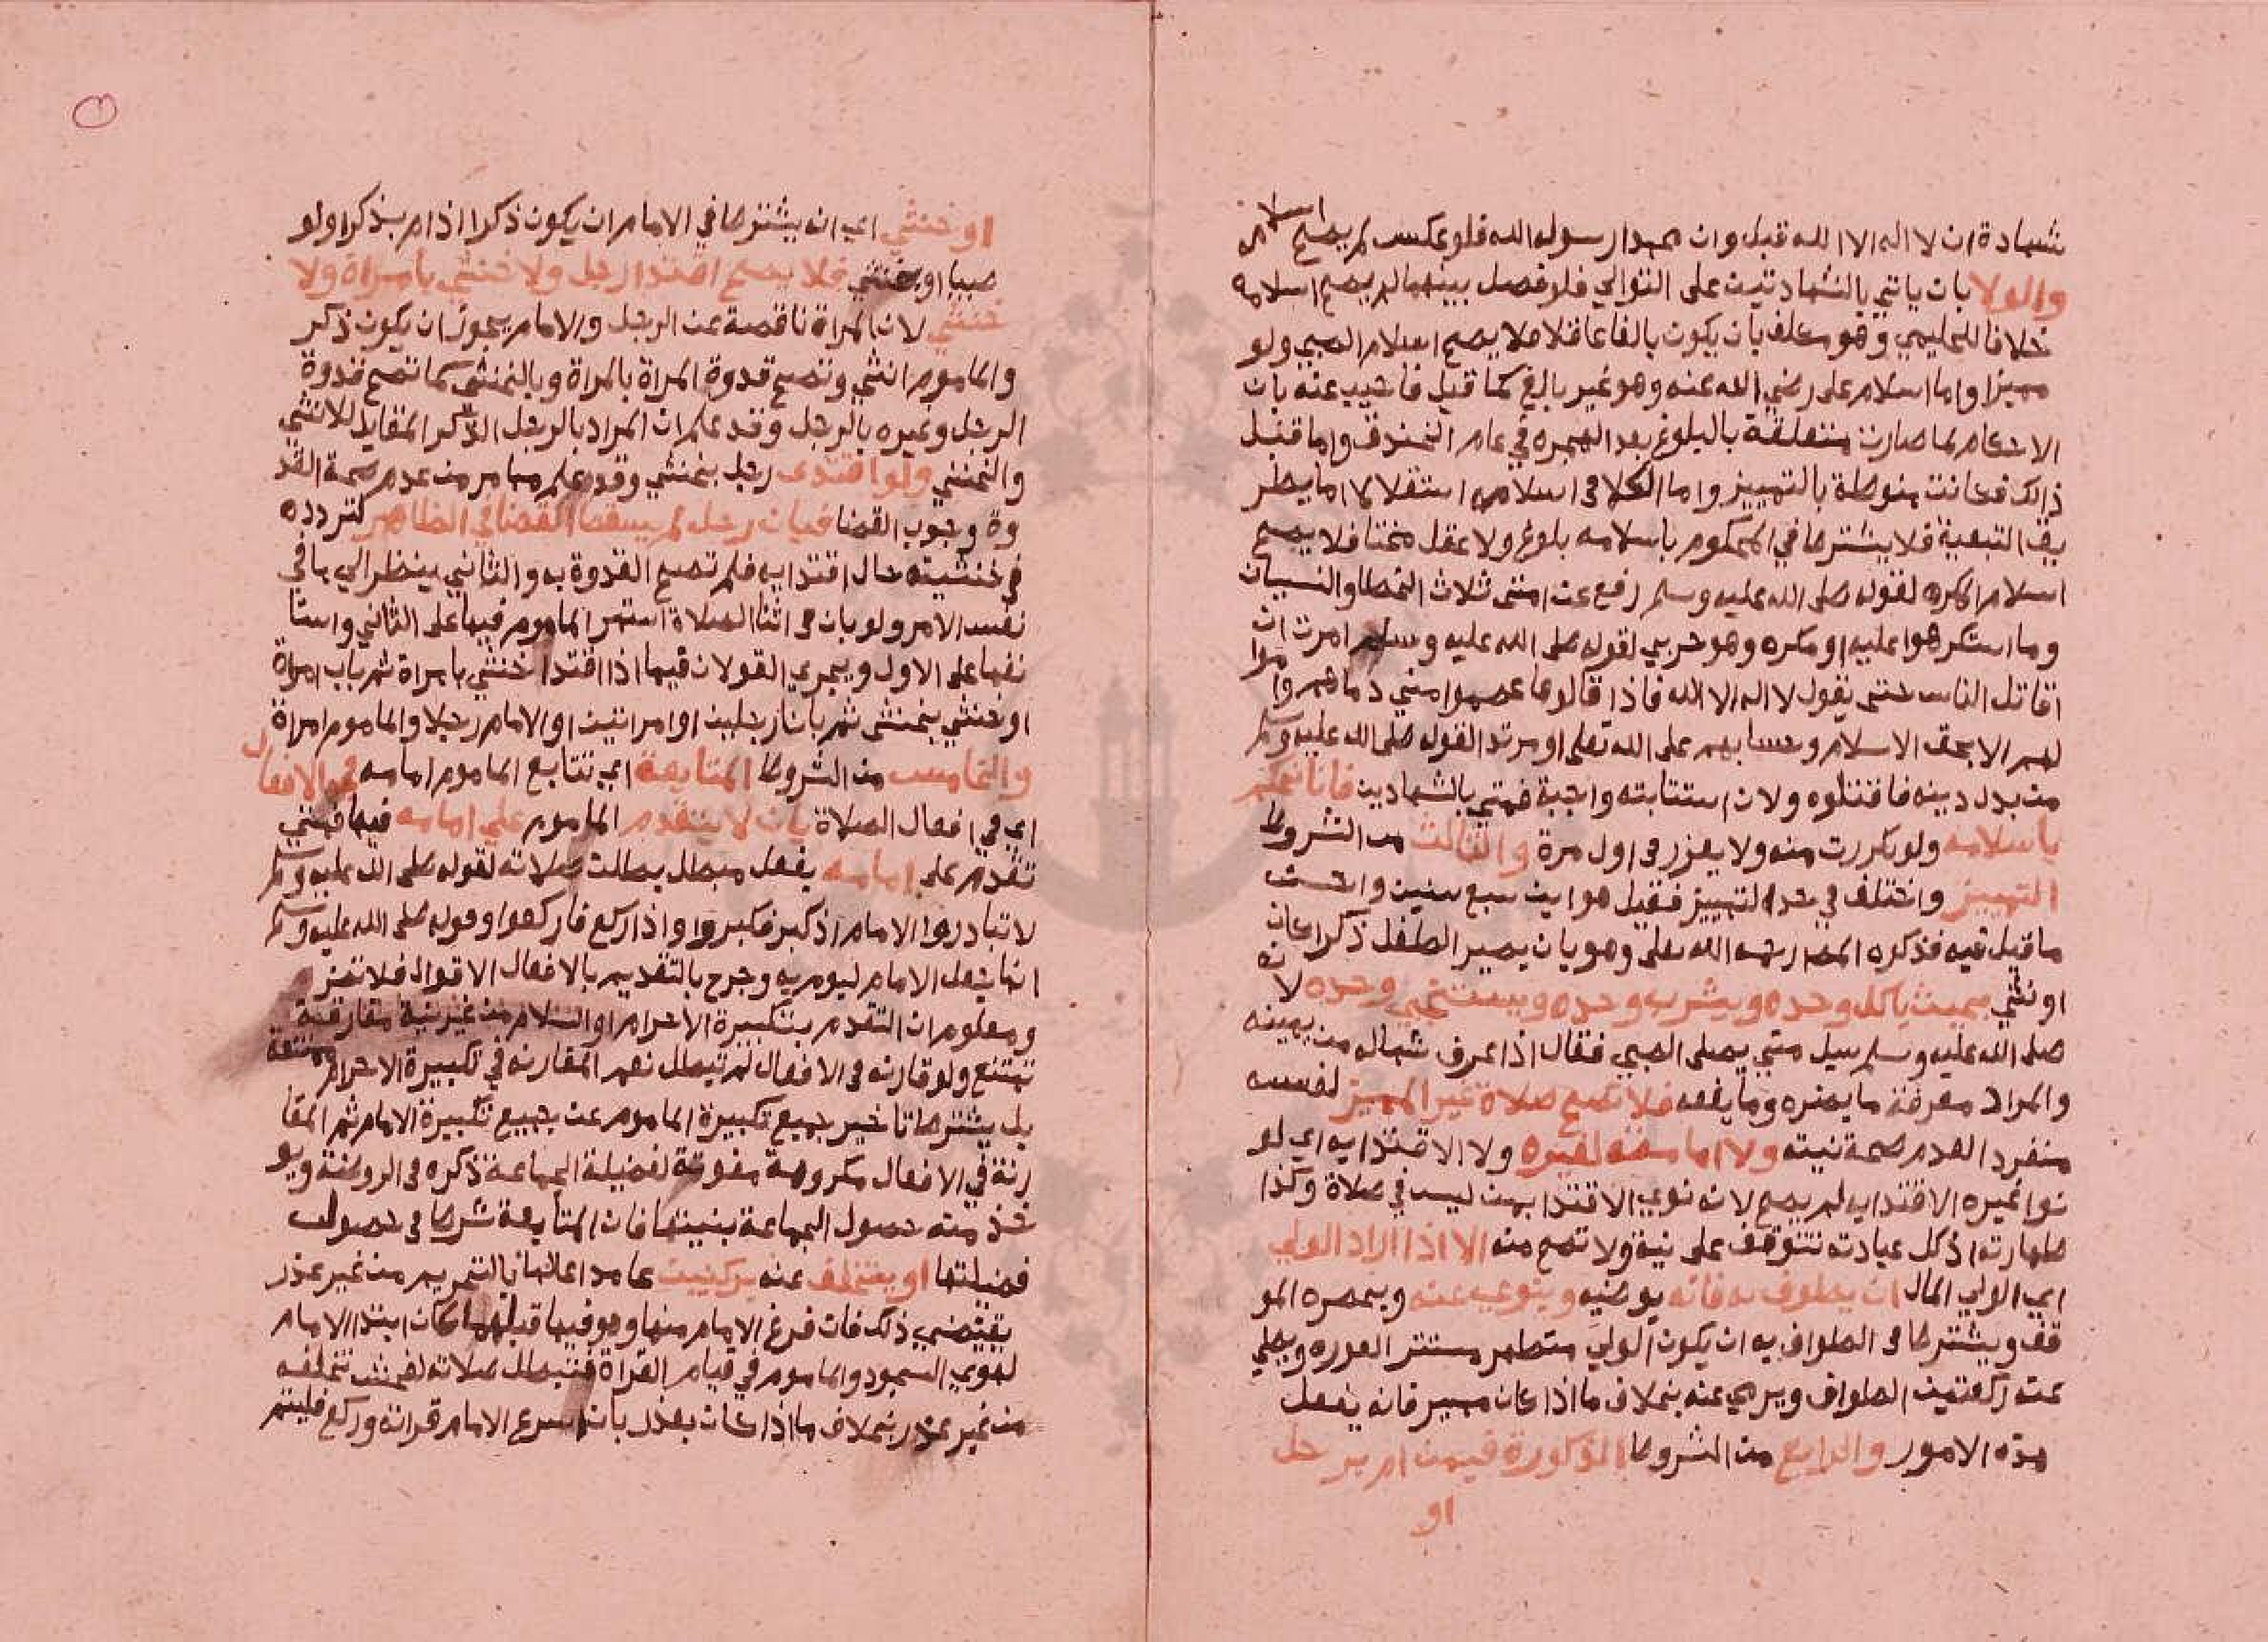 شهادة ان لا اله الا الله قبل وان محمدا رسول الله فلو عكس لم يصح اسلامه
والولا بان ياتي بالشهادتين على التوالي فلو فصل بينهما لم يصح اسلامه
خلافا للحليمي وهو مكلف بان يكون بالغا عاقلا فلا يصح اسلام الصبي ولو
مميزا واما اسلام على رضي الله عنه وهو غير بالغ كما قيل فاجيب عنه بان
الاحكام لما صارت متعلقة بالبلوغ بعد الهجرة في عام الخندق واما قبل
ذالك فكانت منوطة بالتمييز واما الكلا في اسلامه استقلالا اما بطر
يق التبعية فلا يشترط في المحكوم باسلامه بلوغ ولا عقل مختا فلا يصح
اسلام المكره لقوله صلى الله عليه وسلم رفع عن امتى ثلاث الخطا والنسيان
وما استكرهوا عليه او مكره وهو حربي لقوله صلى الله عليه وسلم امرت ان
اقاتل الناس حتى يقول لا اله الا الله فاذا قالوها عصموا مني دماهم واموا
لهم الا بحق الاسلام وحسابهم على الله تعلى او مرتد القوله صلى الله عليه وسلم
من بدل دينه فاقتلوه ولان استتابته واجبة فمتي بالشهادين فانا نحكم
باسلامه ولو تكررت منه ولا يعزر في اول مرة والثالث من الشروط
التمييز واختلف في حد التمييز فقيل هو ابن سبع سنين واحسن
ما قيل فيه فذكره المص رحمه الله تعلى وهو بان يصير الطفل ذكرا كان
او نثي بحيث ياكل وحده ويشرب وحده ويستنجي وحده لانه
صلى الله عليه وسلم سيل متي يصلى الصبي فقال اذا عرف شماله من يمينه
والمراد معرفة ما يضره وما ينفعه فلا تصح صلاة غير المميز لنفسه
منفردا لعدم صحة نيته ولا امامته لغيره ولا الاقتدا به اي لو
نوا غيره الاقتدا به لم يصح لانه نوي الاقتدا بمن ليس في صلاة وكذا
طهارته اذ كل عبادته تتوقف على نية ولا تصح منه الا اذا اراد الولي
اي الولي المال ان يطوف به فانه يوضيه وينوي عنه ويحضره المو
قف ويشترط في الطواف به ان يكون الولي متطهر مستتر العوره ويصلي
عنه ركعتين الطواف ويرمي عنه بخلاف ما اذا كان مميز فانه يفعل
هذه الامور والرابع من الشروط الذكورة فيمن ام برجل
او
او خنثي اي انه يشترط في الامام ان يكون ذكرا اذا ام بذكرا ولو
صبيا او بخنثي فلا يصح اقتدا الرجل ولا خنثي بامراة ولا
خنثي لان المراة ناقصة عن الرجل والامام يجوز ان يكون ذكر
والماموم انثي وتصح قدوة المراة بالمراة وبالخنثى كما تصح قدوة
الرجل وغيره بالرجل وقد علم ان المراد بالرجل الذكر المقابل للانثي
والخنثي ولو اقتدى رجل بخنثي وقد علم مما مر من عدم صحة القد
وة وجوب القضا فبان رجل لم يسقط القضا في الظاهر لتردده
في خنثيته حال اقتدايه فلم تصح القدوة به والثاني ينظر الي ما في
نفس الامر ولو بان في اثنا الصلاة استمر الماموم فيها على الثاني واستا
نفها على الاول ويجري القولان فيما اذا اقتدا خنثي بامراة ثم باب امراة
او خنثي بخنثى ثم بانا رجلين او امراتين او الامام رجلا والماموم امراة
والخامس من الشروط المتابعة اي تتابع الماموم امامه في الافعال
اي في افعال الصلاة بان لا يتقدم الماموم علي امامه فيها فمتي
تقدم على امامه بفعل مبطل بطلت صلاته لقوله صلى الله عليه وسلم
لا تبادروا الامام اذ كبر فكبروا واذا ركع فاركعوا وقوله صلى الله عليه وسلم
انما جعل الامام ليوم به وجرح بالتقديم بالافعال الاقوال فلا تضر
ومعلوم ان التقدم بتكبيرة الاحرام او السلام من غير نية مفارقة
تمتنع ولو قارنه في الافعال لم تبطل نعم المقارنه في تكبيرة الاحرام ممتنعة
بل يشترط تاخير جميع تكبيرة الماموم عن جميع تكبيرة الامام ثم المقا
رنة في الافعال مكروهة مفوتة لفضيلة الجماعة ذكره في الروضة ويو
خذ منه حصول الجماعة بنيتها فان المتابعة شرط في حصول
فضلتها او يتخلف عنه بركنين عامدا عالما بالتحريم من غير عذر
يقتضي ذلك فان فرغ الامام منها وهو فيما قبلهما كان ابتدا الامام
لهوي السجود والماموم في قيام القراة فتبطل صلاته لفحش تخلفه
من غير عذر بخلاف ما اذا كان بعذر بان اسرع الامام قراته وركع فليتم